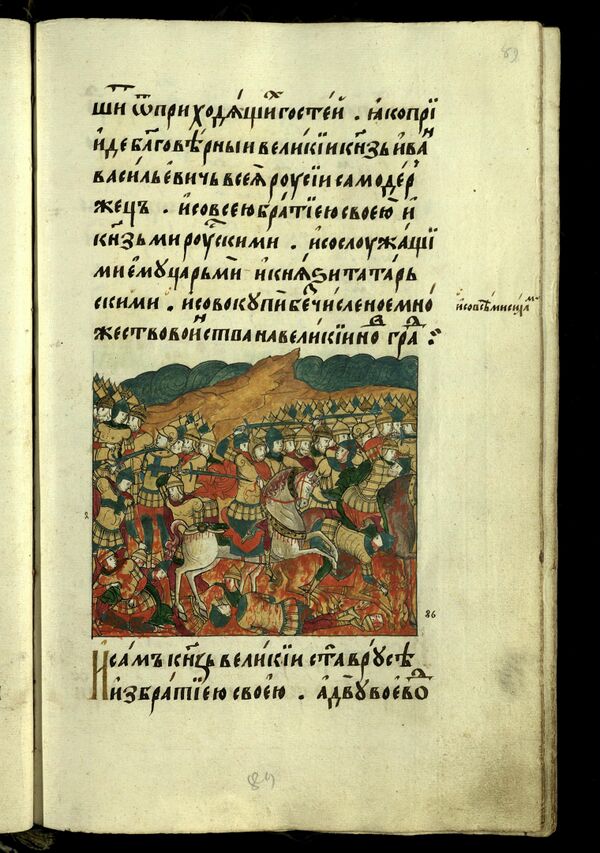 89
ши ѿ приходѧщиⷯ гостей . ꙗко прїи
иде блⷢ҇говѣрныи великїи кнѧзь иваⷩ
васильевичь всеѧ роусїи самодер
жецъ . и со всею братїею своею и
кнѧзьми роускими . и со слоужащи
ми ему царьми и кнѧѕи татарь
скими . и совокупи бесчисленое мно
жество воиⷩства на великїи новⷢ҇ градⷣ :
и со всѣми силами
86
И самъ кнѧзь великїи ста в русѣ
и з братїею своею . а двꙋ воевоⷣ
89